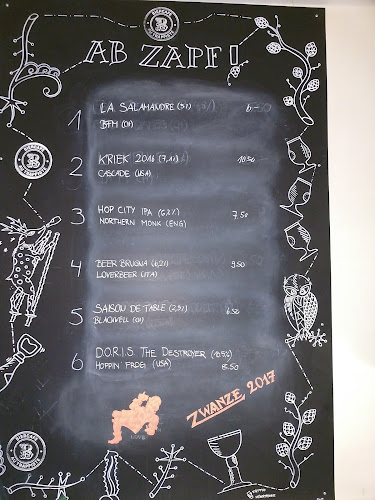 BIERCAFE
B
AU TRAPPISTE
AB ZAPF!
1 LA SALAMANDRE (5%)
BFM (CH)
2 KRIEK 2016 (7,1%) 10.50
CASCADE (USA)
3 HOP CITY IPA (6,2%) 7.50
NORTHERN MONK (ENG)
4 BEER BRUGNA (6,2%) 9.50
LOVERBEER (ITA)
5 SAISON DE TABLE (2,9%) 6.50
BLACKWELL (CH)
6 D.O.R.I.S. THE DESTROYER (10.5%)
HOPPIN' FROG (USA) 15.50
ZWANZE 2017
BIERCAFE
B
AU TRAPPISTE